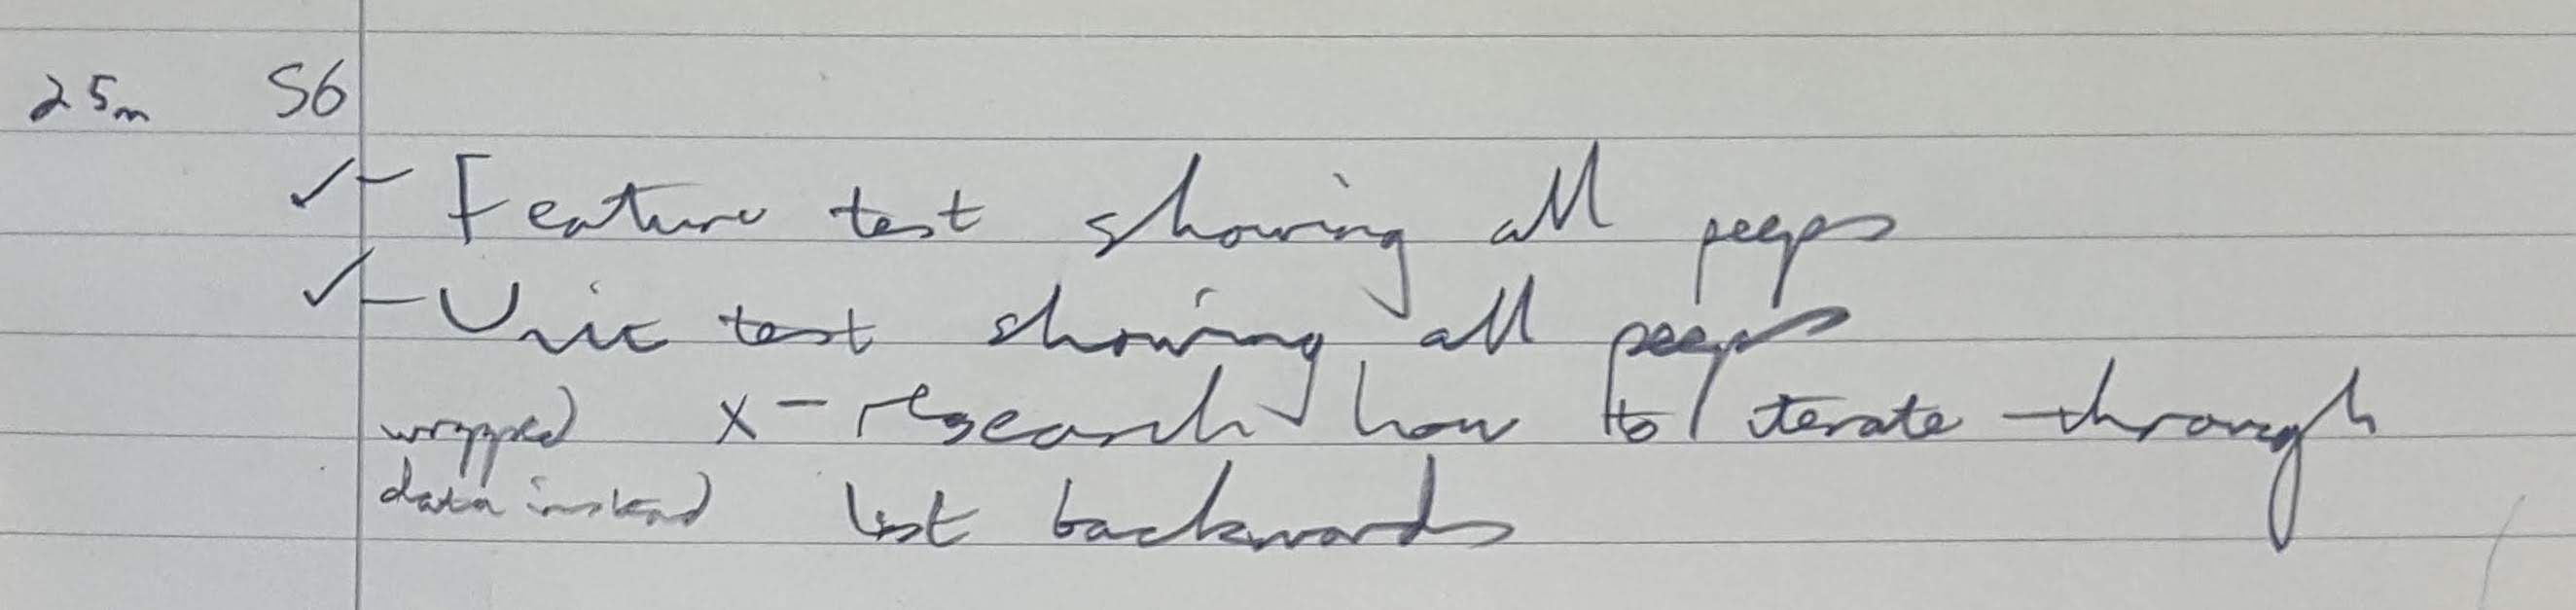 25m S6
✓ - Feature test showing all peeps
✓ - Unit test showing all peeps
wrapped x - research how to iterate through
data instead list backwards